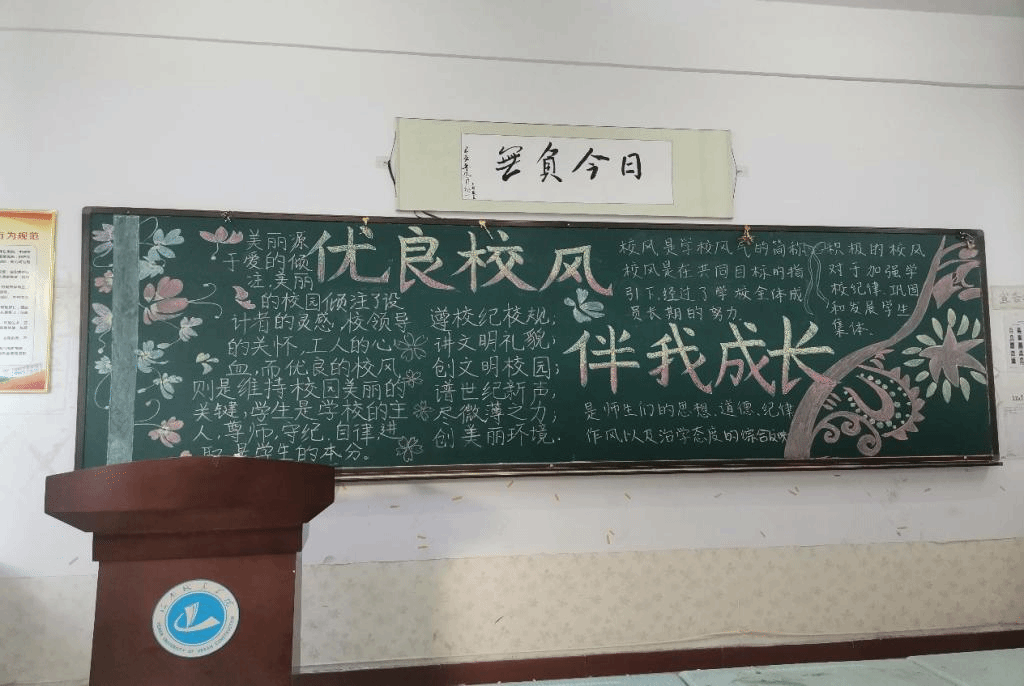 無負今日
行为规范
优良校风
伴我成长
美丽源
于爱的倾
注,美丽
的校园倾注了设
计者的灵感,校领导
的关怀,工人的心
血,而优良的校风
则是维持校园美丽的
关键,学生是学校的主
人,尊师,守纪,自律,进
取是学生的本分。
遵校纪校规;
讲文明礼貌;
创文明校园;
谱世纪新声,
尽微薄之力;
创美丽环境.
校风是学校风气的简称
校风是在共同目标的指
引下,经过了学校全体成
员长期的努力.
积极的校风
对于加强学
校纪律、巩固
和发展学生
集体.
是师生们的思想、道德、纪律
作风以及治学态度的综合反映